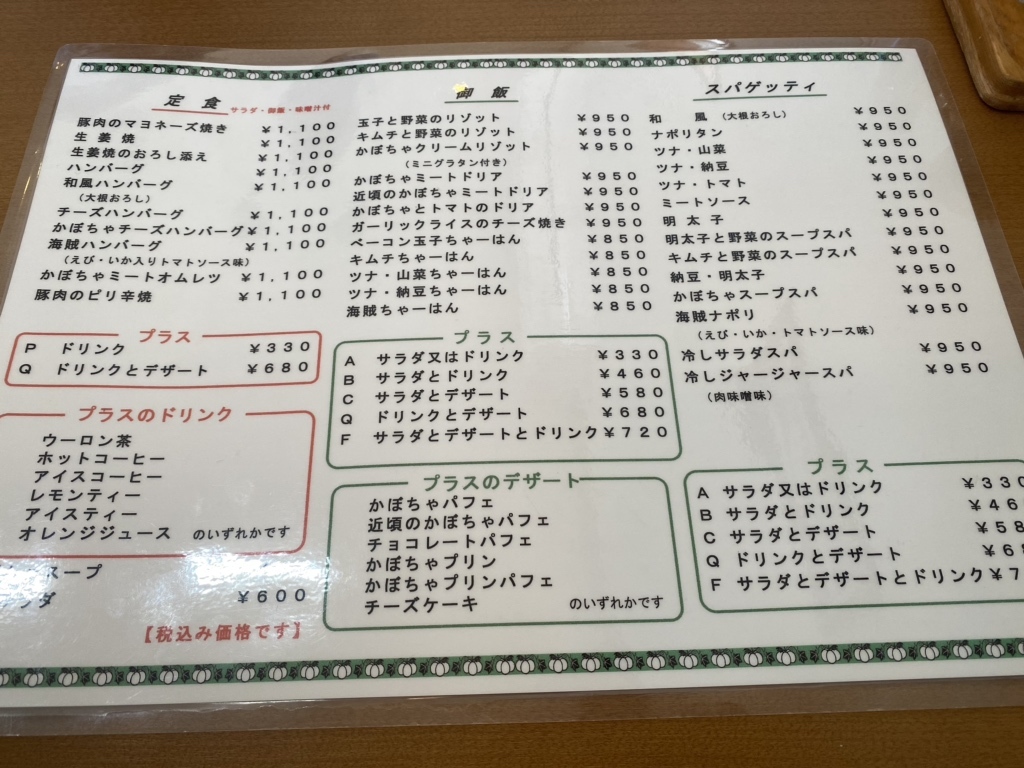 定食 サラダ・御飯・味噌汁付
豚肉のマヨネーズ焼き ¥1,100
生姜焼 ¥1,100
生姜焼のおろし添え ¥1,100
ハンバーグ ¥1,100
和風ハンバーグ ¥1,100
(大根おろし)
チーズハンバーグ ¥1,100
かぼちゃチーズハンバーグ ¥1,100
海賊ハンバーグ ¥1,100
(えび・いか入りトマトソース味)
かぼちゃミートオムレツ ¥1,100
豚肉のピリ辛焼 ¥1,100
プラス
P ドリンク ¥330
Q ドリンクとデザート ¥680
プラスのドリンク
ウーロン茶
ホットコーヒー
アイスコーヒー
レモンティー
アイスティー
オレンジジュース のいずれかです
スープ
ダ ¥600
【税込み価格です】
御飯
玉子と野菜のリゾット ¥950
キムチと野菜のリゾット ¥950
かぼちゃクリームリゾット ¥950
(ミニグラタン付き)
かぼちゃミートドリア ¥950
近頃のかぼちゃミートドリア ¥950
かぼちゃとトマトのドリア ¥950
ガーリックライスのチーズ焼き ¥950
ベーコン玉子ちゃーはん ¥850
キムチちゃーはん ¥850
ツナ・山菜ちゃーはん ¥850
ツナ・納豆ちゃーはん ¥850
海賊ちゃーはん ¥850
プラス
A サラダ又はドリンク ¥330
B サラダとドリンク ¥460
C サラダとデザート ¥580
Q ドリンクとデザート ¥680
F サラダとデザートとドリンク ¥720
プラスのデザート
かぼちゃパフェ
近頃のかぼちゃパフェ
チョコレートパフェ
かぼちゃプリン
かぼちゃプリンパフェ
チーズケーキ のいずれかです
スパゲッティ
和風 (大根おろし) ¥950
ナポリタン ¥950
ツナ・山菜 ¥950
ツナ・納豆 ¥950
ツナ・トマト ¥950
ミートソース ¥950
明太子 ¥950
明太子と野菜のスープスパ ¥950
キムチと野菜のスープスパ ¥950
納豆・明太子 ¥950
かぼちゃスープスパ ¥950
海賊ナポリ ¥950
(えび・いか・トマトソース味)
冷しサラダスパ ¥950
冷しジャージャースパ ¥950
(肉味噌味)
プラス
A サラダ又はドリンク ¥330
B サラダとドリンク ¥46
C サラダとデザート ¥58
Q ドリンクとデザート ¥68
F サラダとデザートとドリンク ¥7